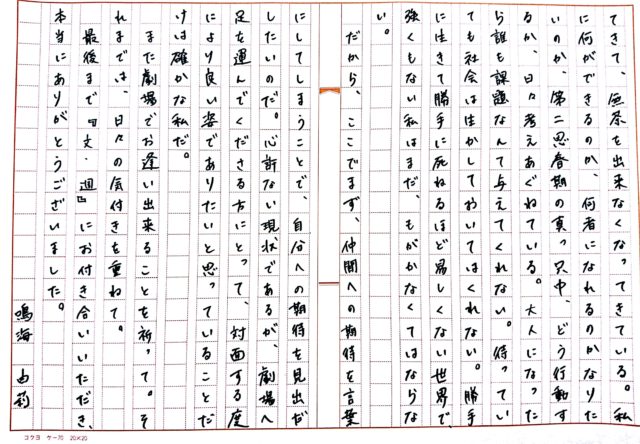 てきて、無茶をしたくなってきている。私
に何ができるのか、何者になれるのかなりた
いのか、第二思春期の真っ只中、どう行動す
るか、日々考えあぐねている。大人になった
ら誰も課題なんて与えてくれない。待ってい
ても社会は生かしておいてはくれない。勝手
に生きて勝手に死ねるほど易しくない世界で
強くもない私はまだ、もがかなくてはならな
い。
だから、ここでまず、仲間への期待を言葉
にしてしまうことで、自分への期待を見出だ
したいのだ。心許ない現状であるが、劇場へ
足を運んでくださる方にとって、対面する度
により良い姿でありたいと思っていることだ
けは確かな私だ。
また劇場でお逢い出来ることを祈って。そ
れまでは、日々の気付きを重ねて。
最後まで『文・週』にお付き合いいただき、
本当にありがとうございました。
鳴海 由莉
コクヨ ケ-70 20×20